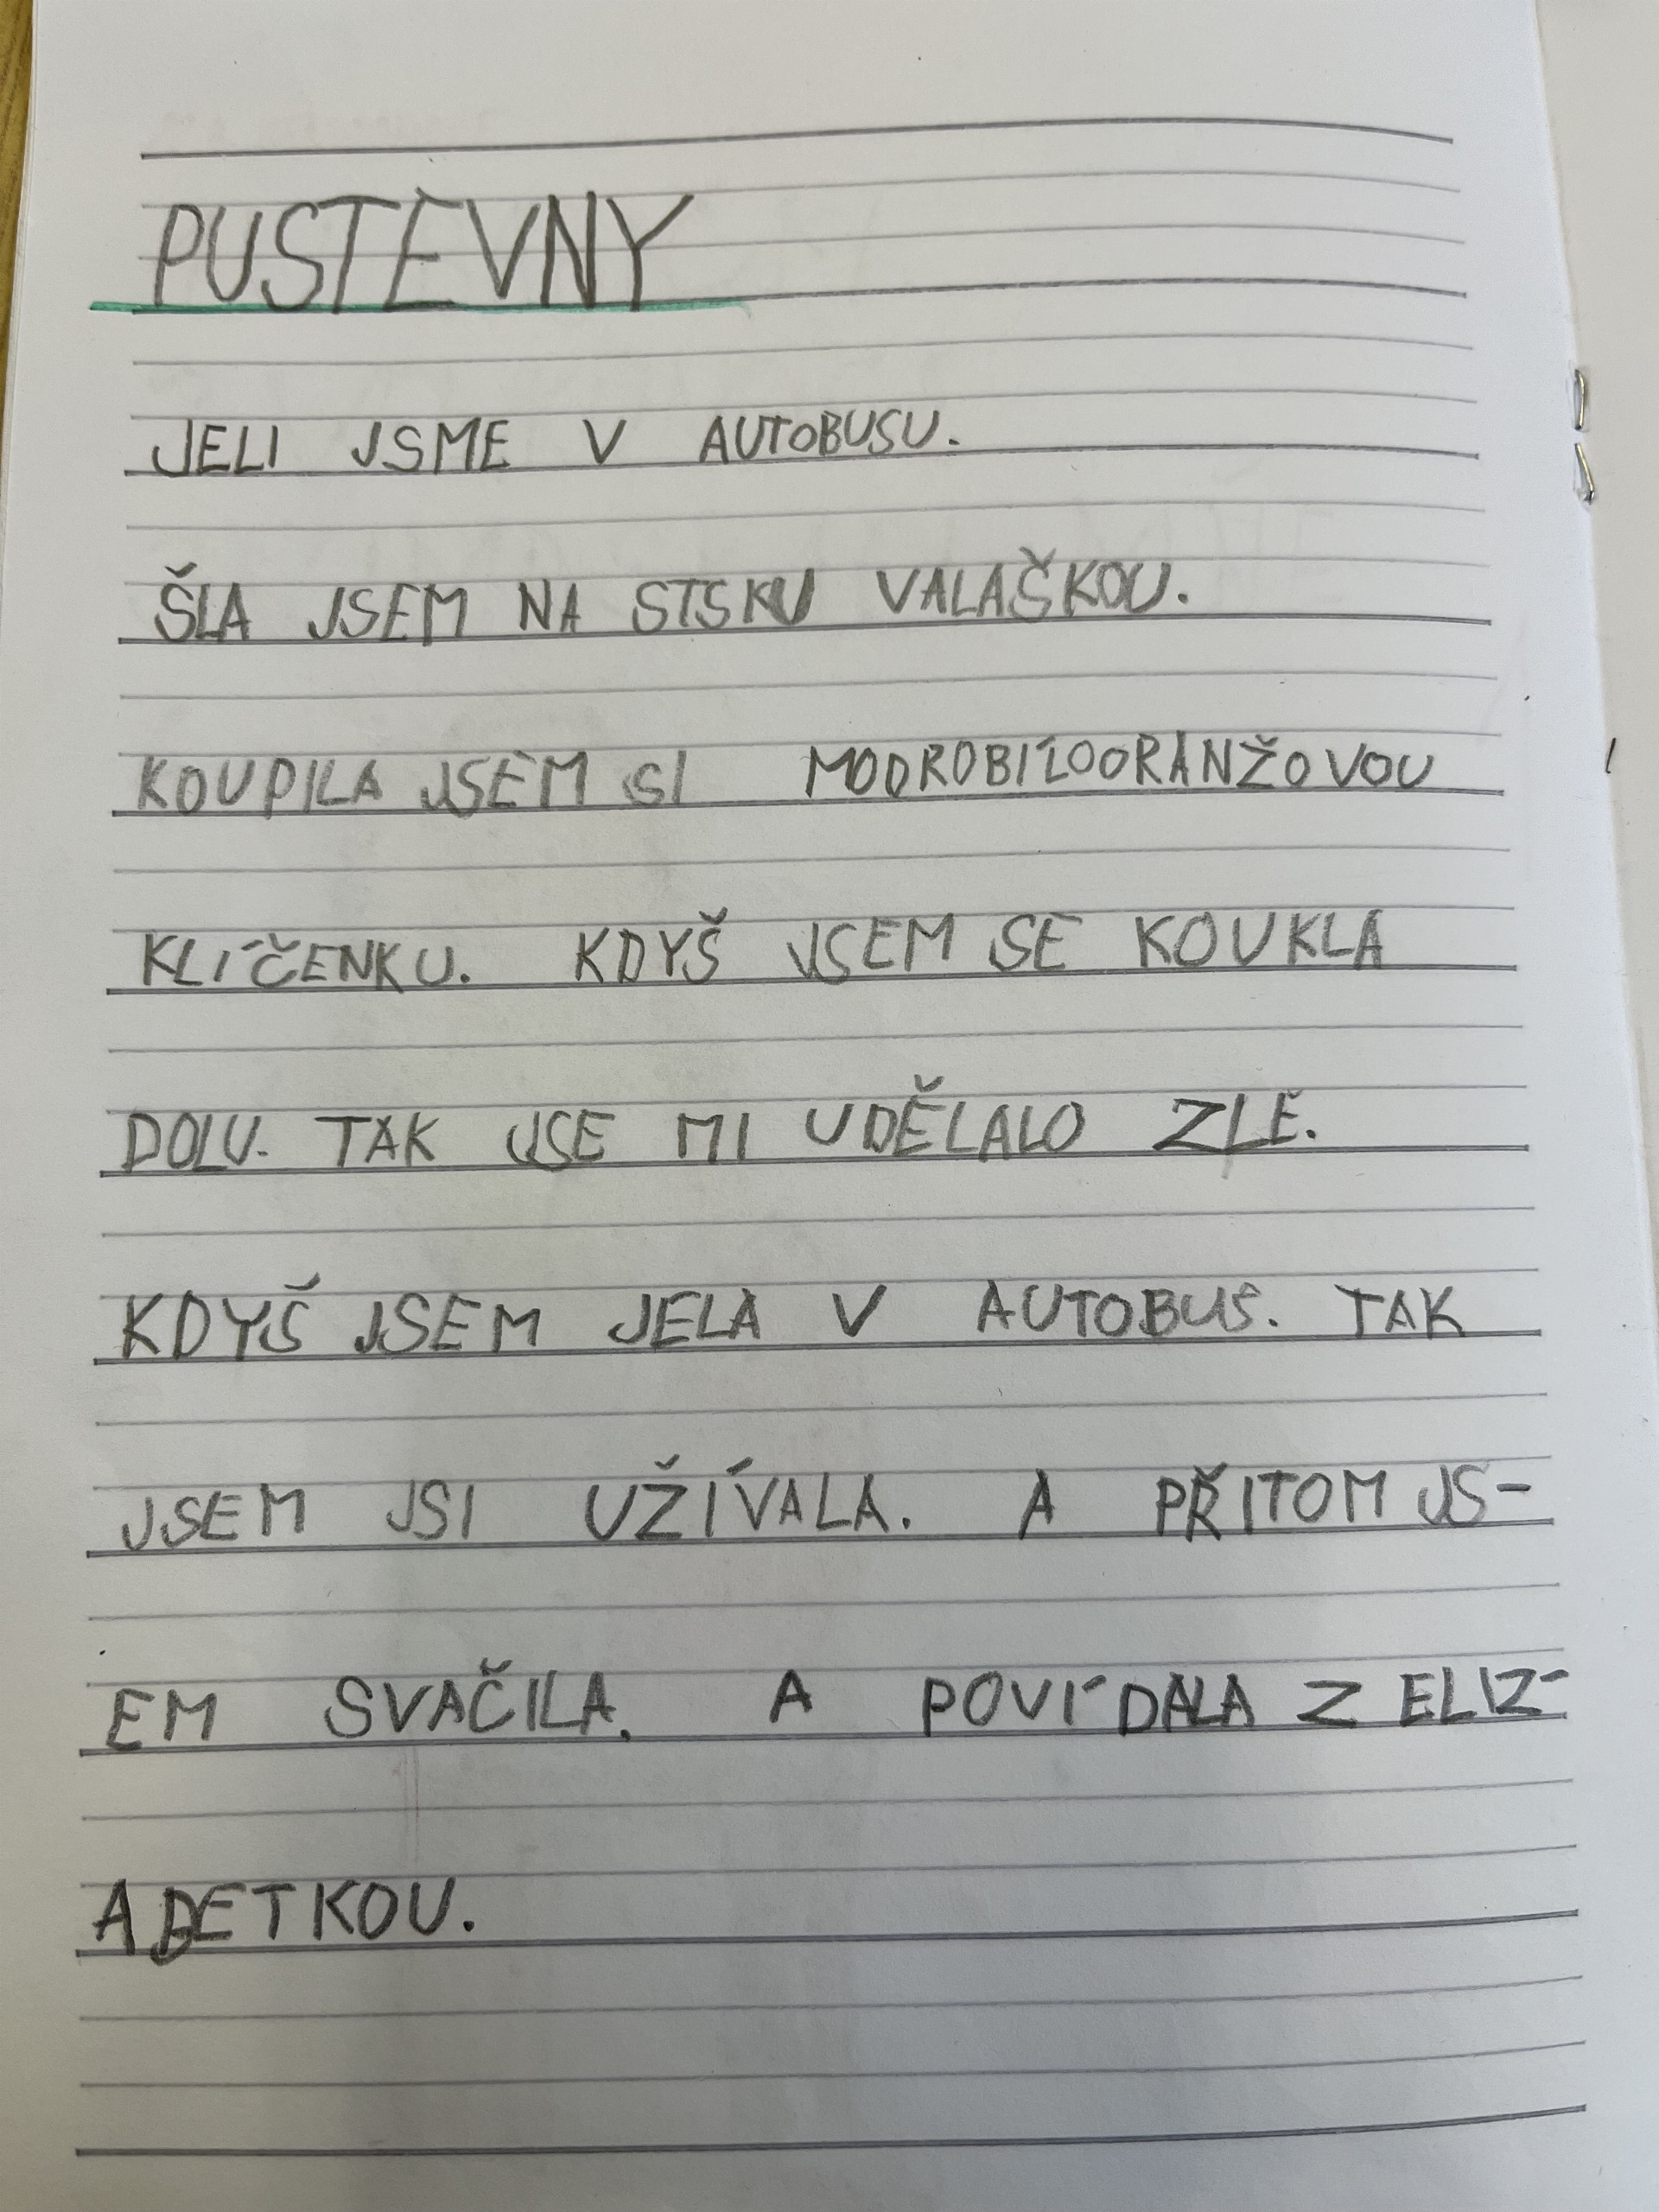 PUSTEVNY
JELI JSME V AUTOBUSU.
ŠLA JSEM NA STSKU VALAŠKOU.
KOUPILA JSEM SI MODROBÍLOORANŽOVOU
KLÍČENKU. KDYŠ JSEM SE KOUKLA
DOLU. TAK JSE MI UDĚLALO ZLE.
KDYŠ JSEM JELA V AUTOBUS. TAK
JSEM JSI UŽÍVALA. A PŘITOM JS-
EM SVAČILA. A POVÍDALA Z ELIZ-
ABETKOU.